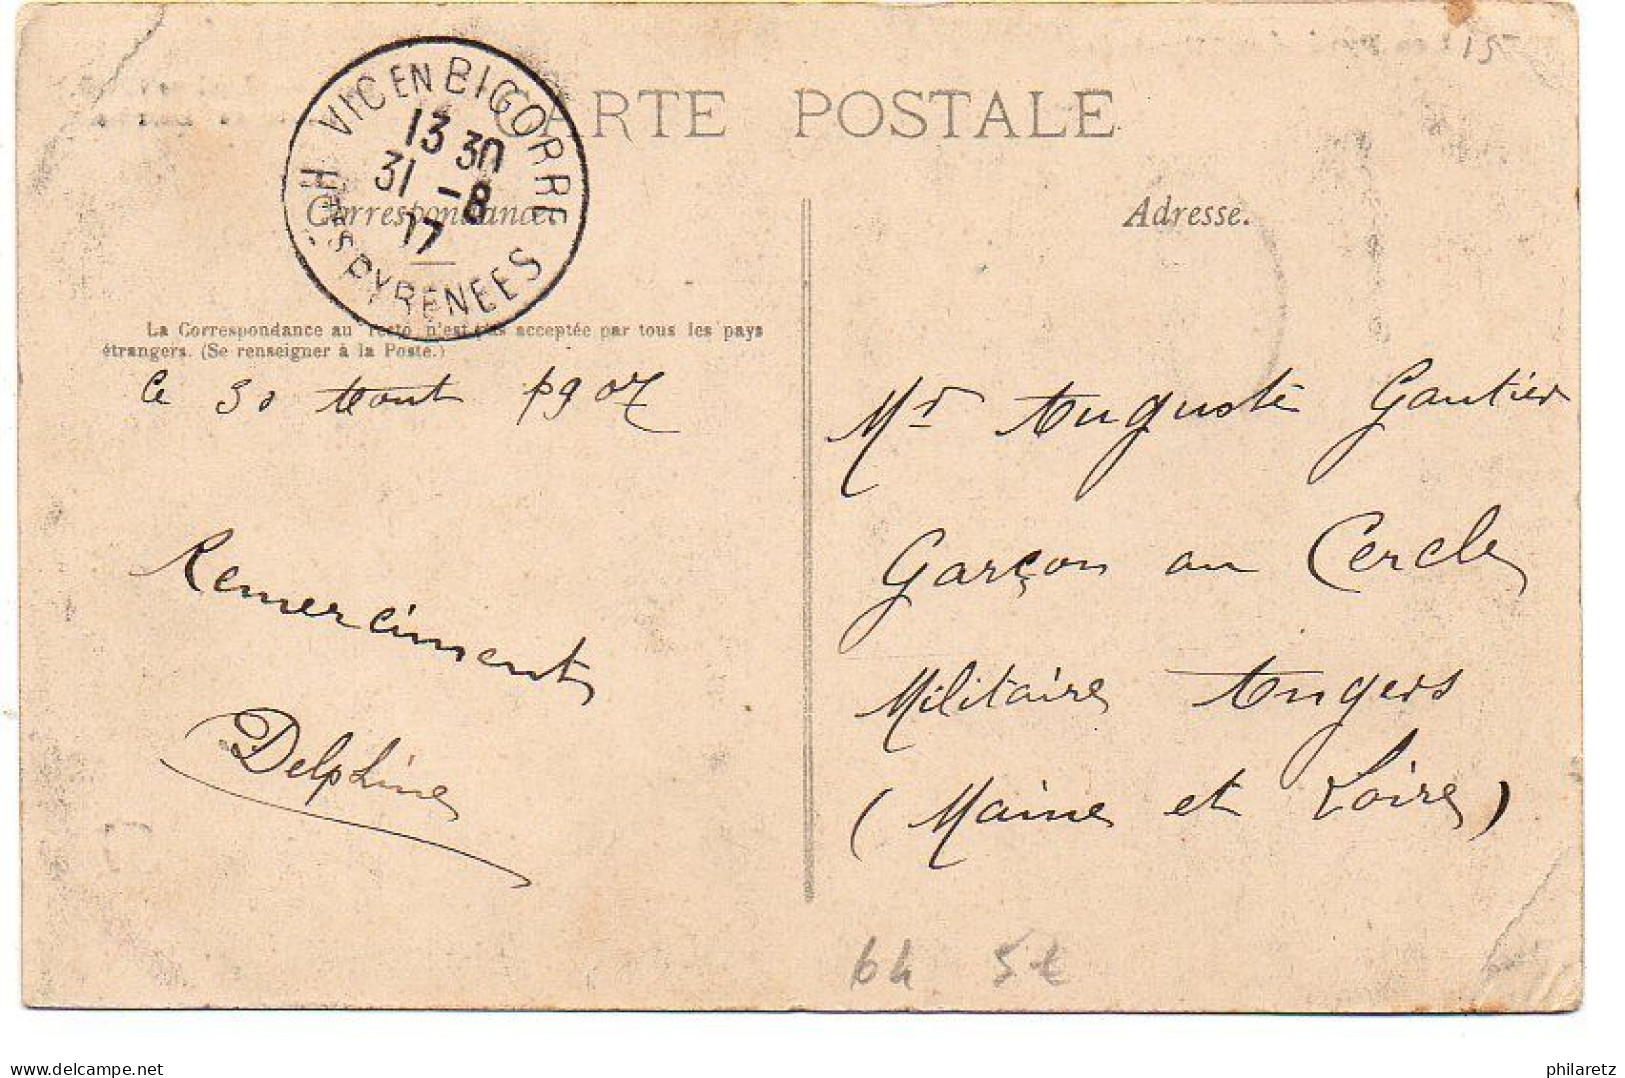 CARTE POSTALE
VIC EN BIGORRE
13 30
31 -8
17
Htes PYRENEES
Correspondance.
Adresse.
La Correspondance au recto n'est pas acceptée par tous les pays
étrangers. (Se renseigner à la Poste.)
Ce 30 Aout 1907
Remerciments
Delphine
Mr Auguste Gautier
Garçon au Cercle
Militaire Angers
(Maine et Loire)
6h 5e
15
delcampe.net
philaretz